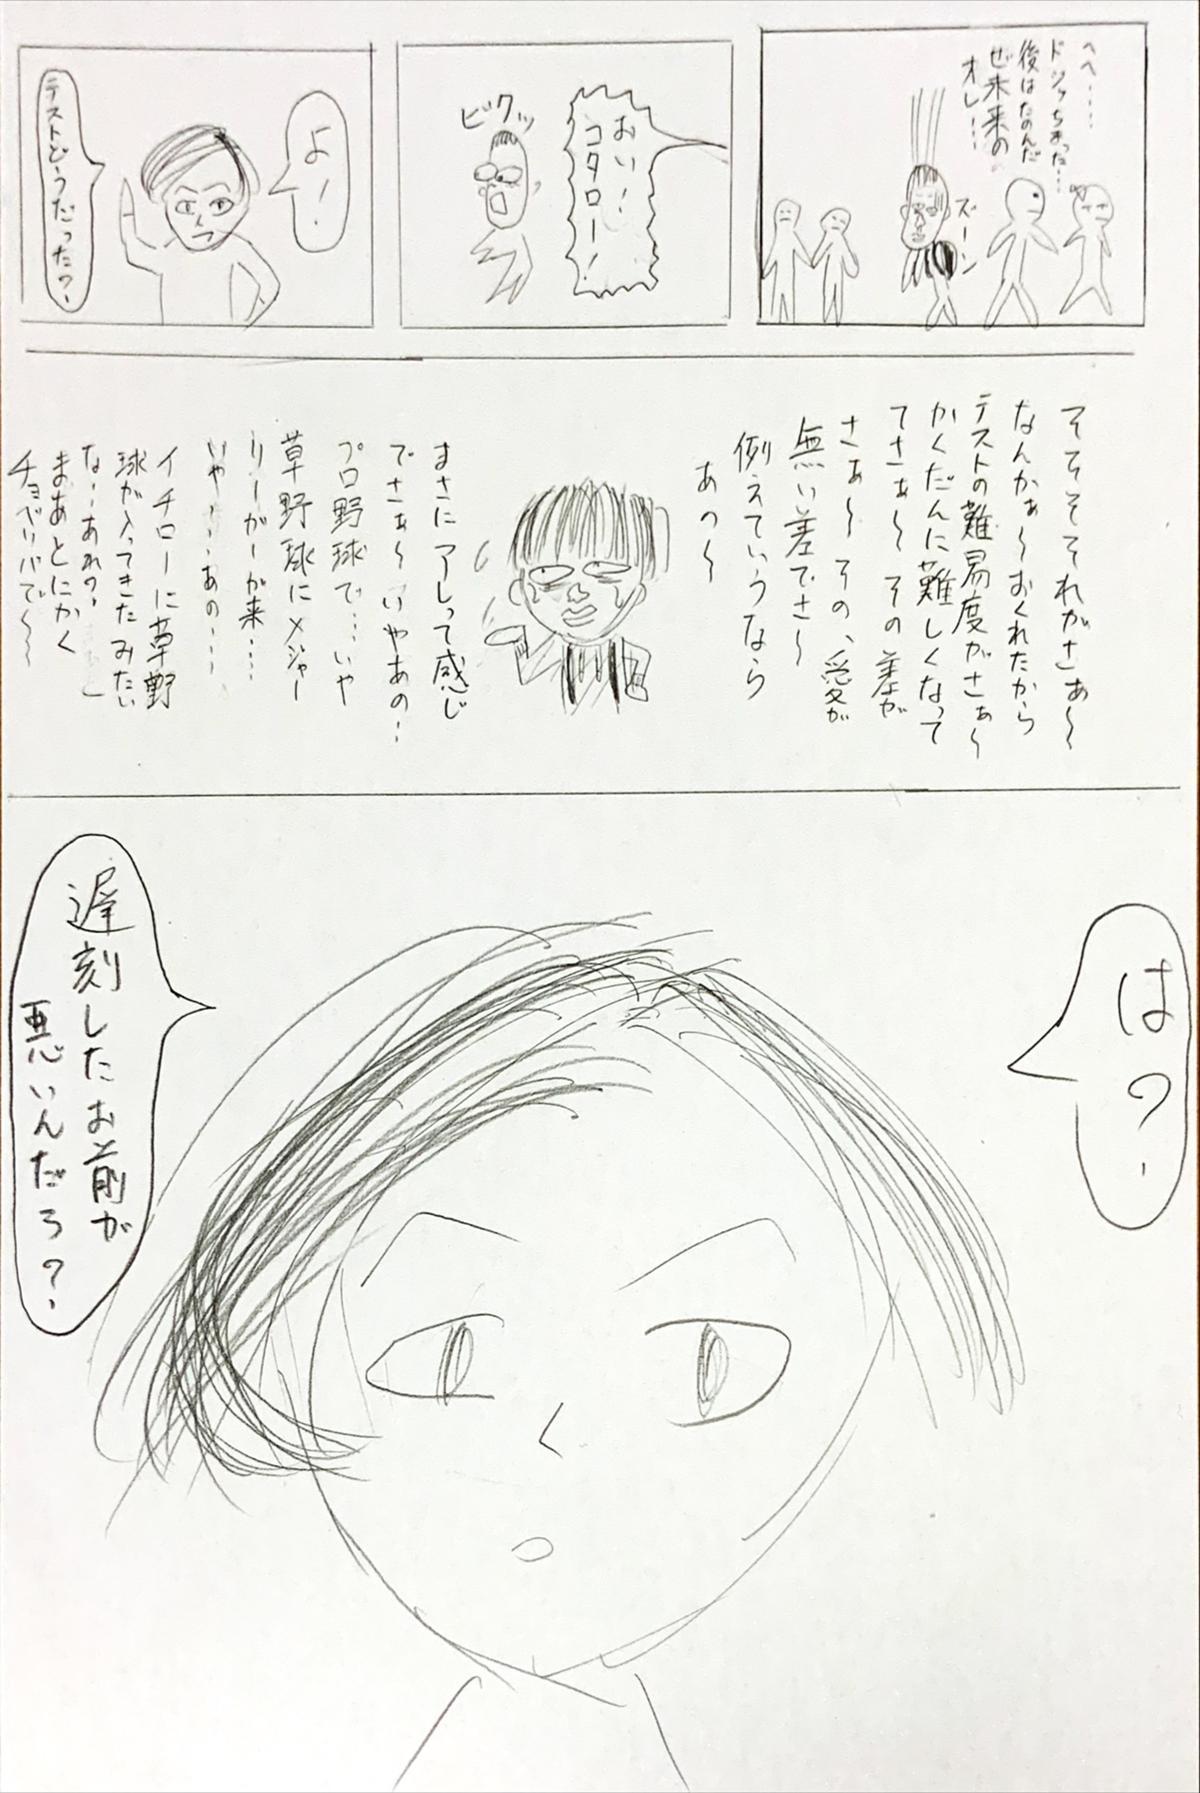 へへ……
ドジッちまった…
後はたのんだ
ぜ未来の
オレ…
ズーン
おい！
コタロー！
ビクッ
よ！
テストどうだった？
そそそそれがさぁ～
なんかぁ～おくれたから
テストの難易度がさぁ～
かくだんに難しくなって
てさぁ～その差が
さぁ～その、愛が
無い差でさ～
例えていうなら
あの～
まさにアレって感じ
でさぁ～いやあの…
プロ野球で…いや
草野球にメジャー
リーガーが来…
いや…あの…
イチローに草野
球が入ってきたみたい
な…あれの、
まあとにかく
チョベリバで～～
は？
遅刻したお前が
悪いんだろ？